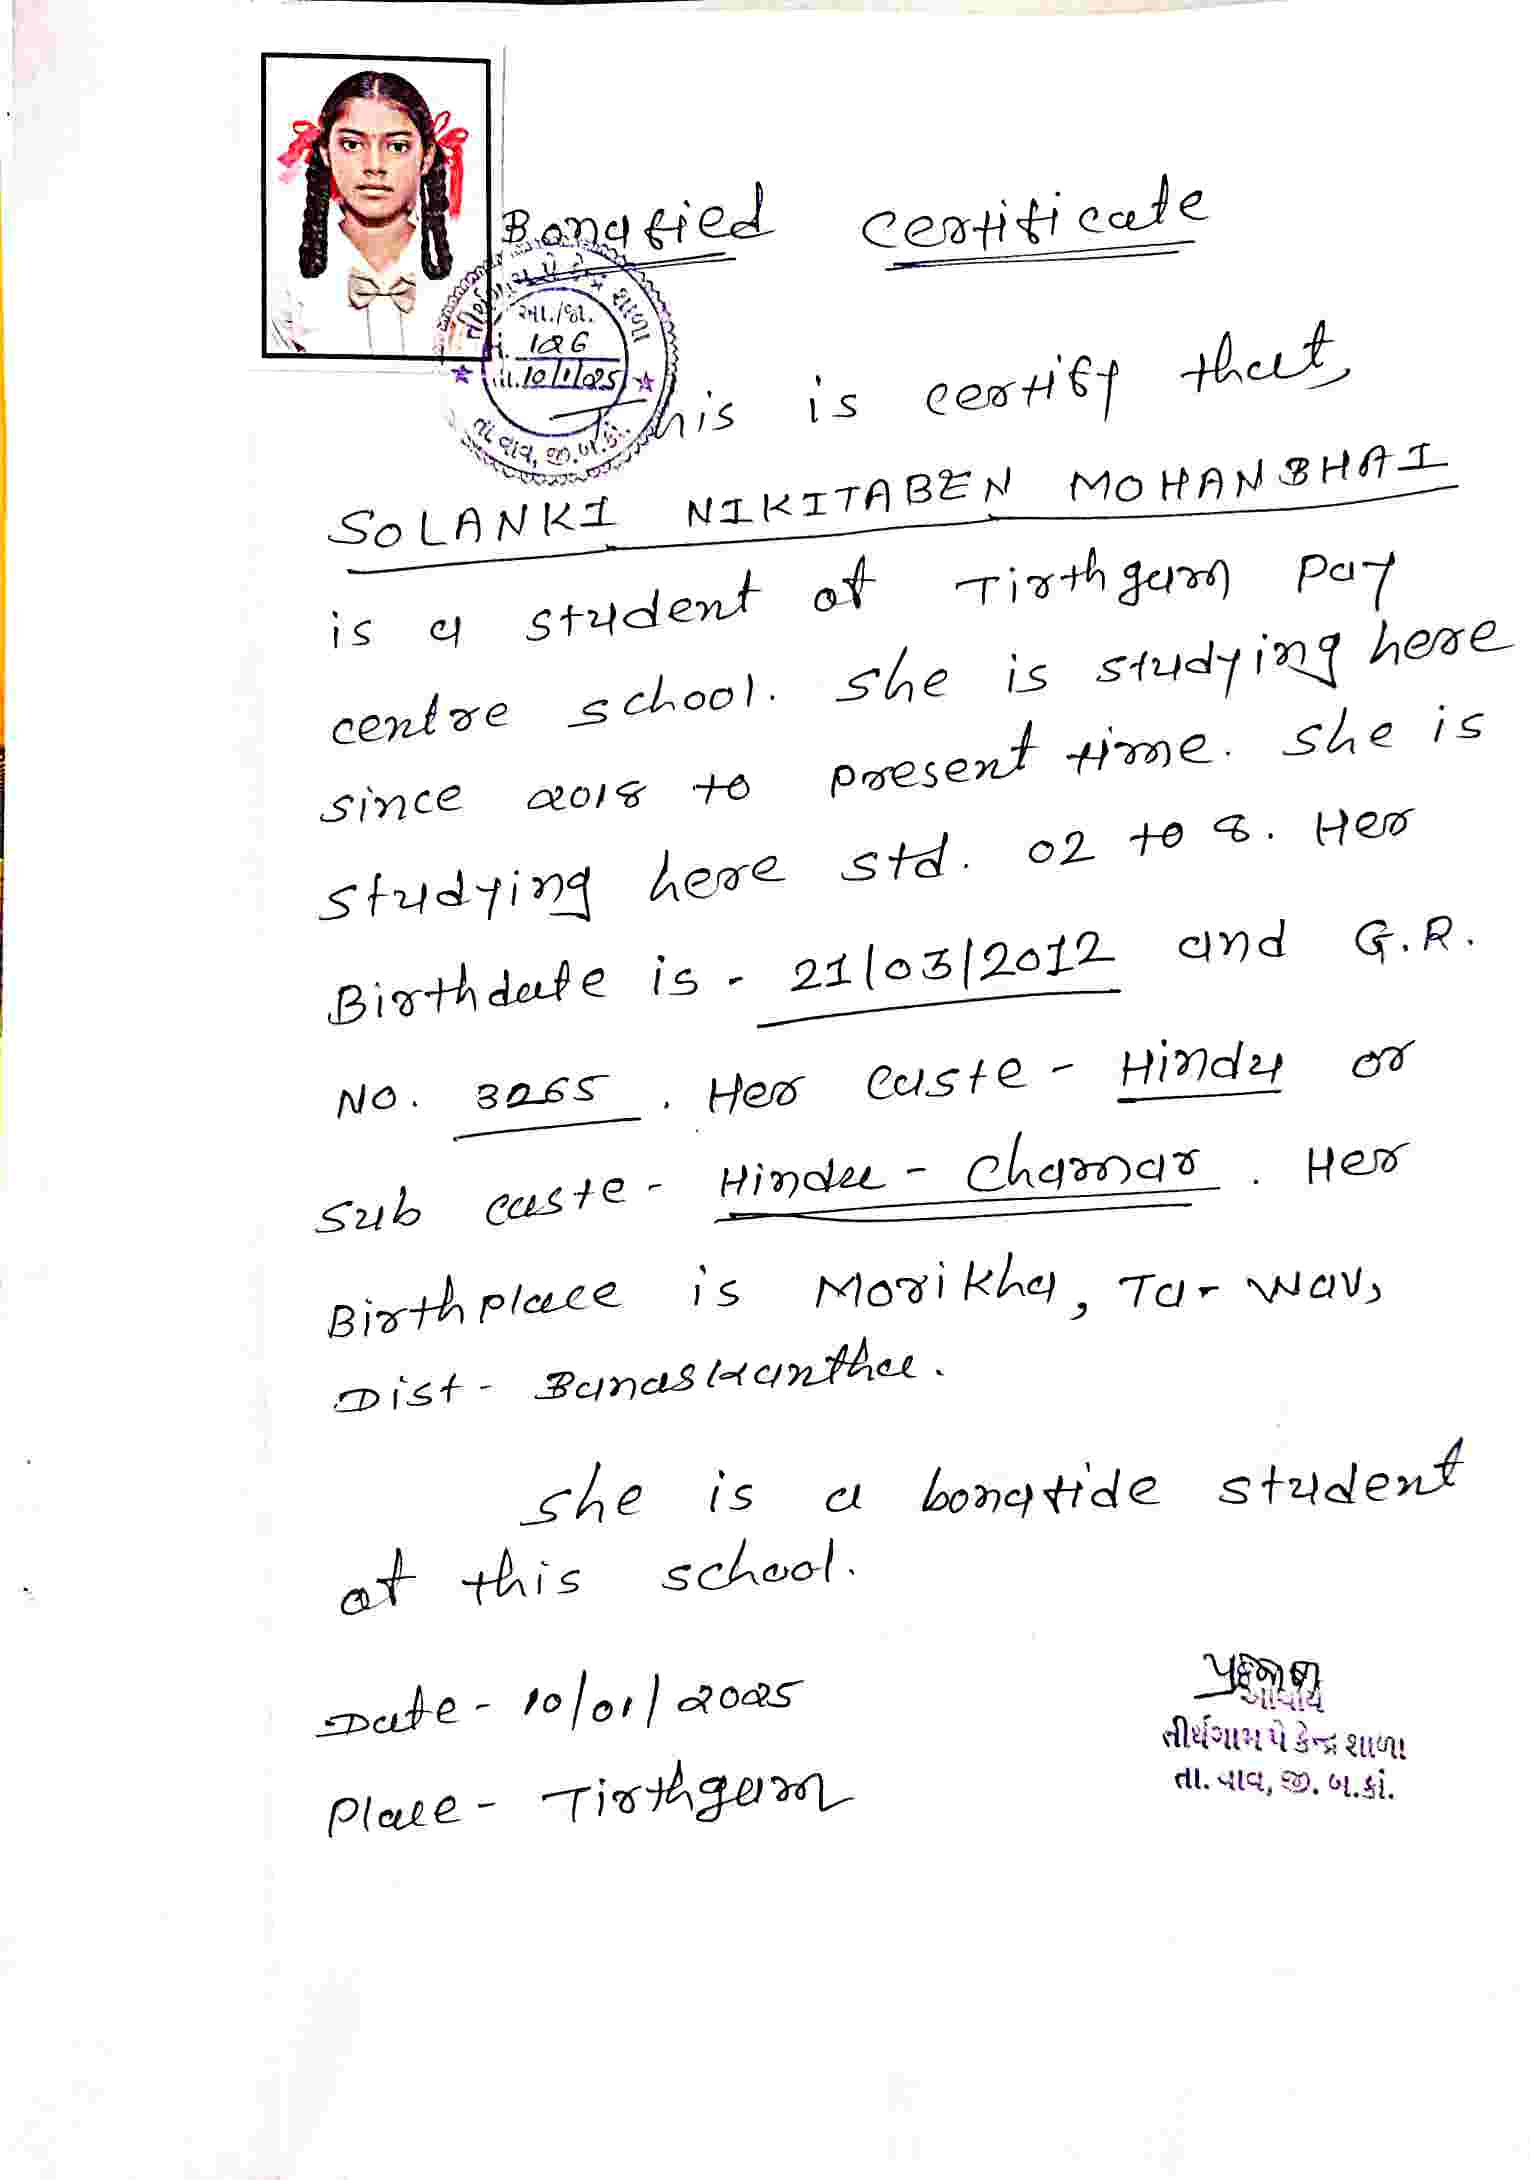 Bonafied Certificate
તીર્થગામ પે કેન્દ્ર શાળા
આ./જા.
નં. 126
તા. 10/1/025
તા. વાવ, જી.બ.કાં.
This is certify that,
SOLANKI NIKITABEN MOHANBHAI
is a student of Tirthgam Pay
centre school. She is studying here
since 2018 to present time. She is
studying here std. 02 to 8. Her
Birthdate is - 21/03/2012 and G.R.
No. 3265 . Her caste - Hindu or
Sub caste - Hindu - Chamar . Her
Birthplace is Morikha, Ta- Wav,
Dist - Banaskantha.
She is a bonafide student
of this school.
Date - 10/01/2025
Place - Tirthgam
આચાર્ય
તીર્થગામ પે કેન્દ્ર શાળા
તા. વાવ, જી. બ.કાં.